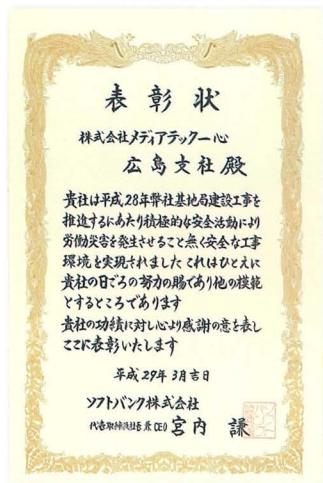 表彰状
株式会社メディアテック一心
広島支社殿
貴社は平成28年弊社基地局建設工事を
推進するにあたり積極的な安全活動により
労働災害を発生させること無く安全な工事
環境を実現されました これはひとえに
貴社の日ごろの努力の賜であり他の模範
とするところであります
貴社の功績に対し心より感謝の意を表し
ここに表彰いたします
平成29年3月吉日
ソフトバンク株式会社
代表取締役社長 兼 CEO 宮内 謙